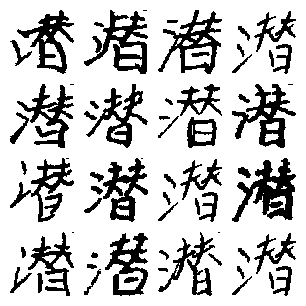 潜潜潜潜
潜潜潜潜
潜潜潜潜
潜潜潜潜